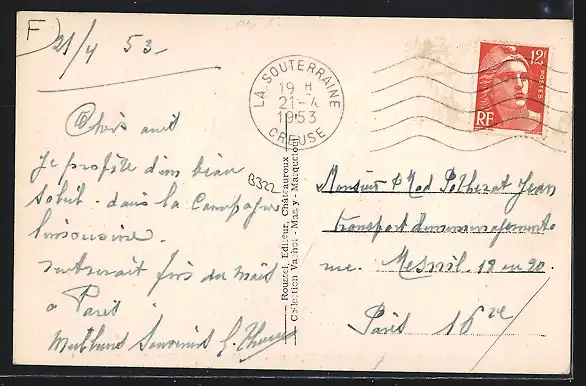 F
21/4 53-
LA SOUTERRAINE
19 H
21-4
1953
CREUSE
12F
POSTES
RF
Chers amis
Je profite d'un beau
soleil. dans la Campagne
limousine.
fin du mois
a Paris
Meilleurs Souvenirs
B322
Roussel, Editeur, Châteauroux
Collection Vachot - Mas-y-Marquetout
Monsieur & Mad Jean
transport
rue. Mesnil. 18 ou 20.
Paris 16